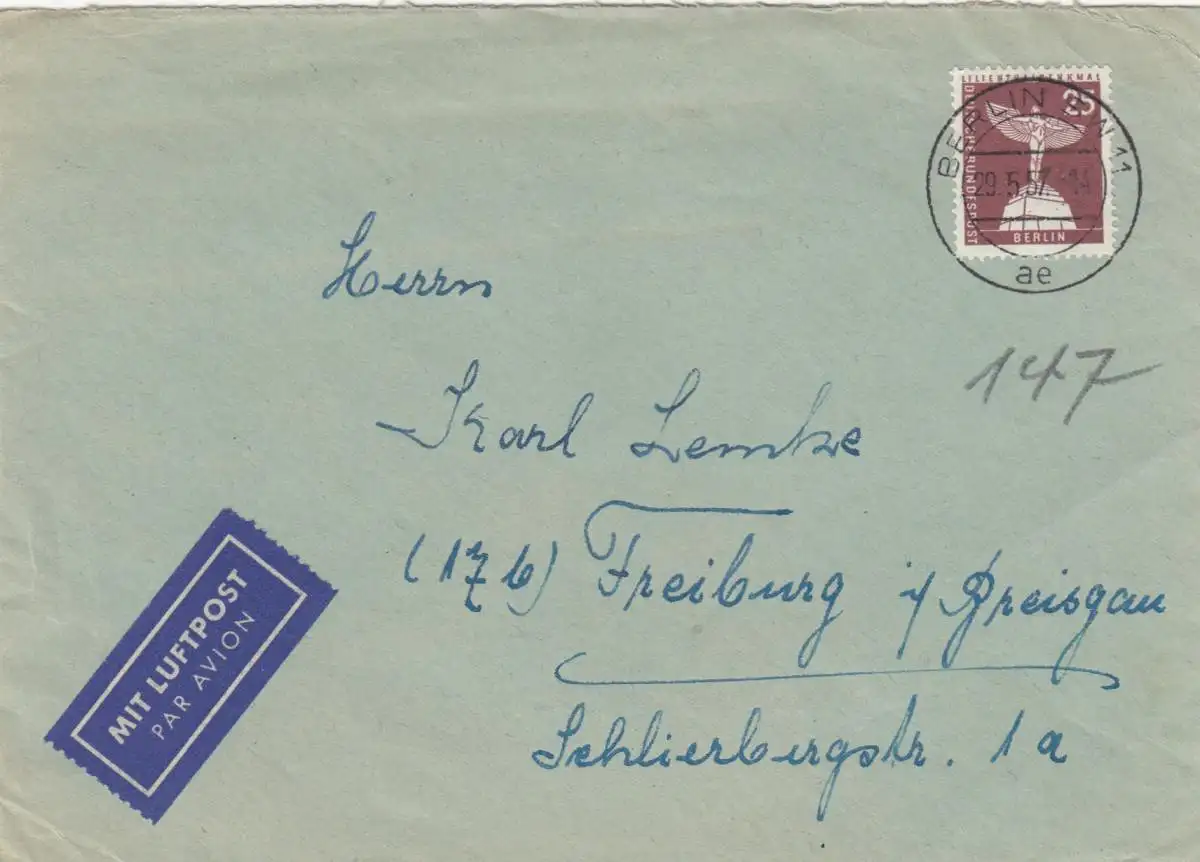 LILIENTHALDENKMAL
25
DEUTSCHE BUNDESPOST
BERLIN
BERLIN SW 11
29.5.57.-14
ae
147
Herrn
Karl Lemke
(17b) Freiburg i/Breisgau
Schlierbergstr. 1a
MIT LUFTPOST
PAR AVION